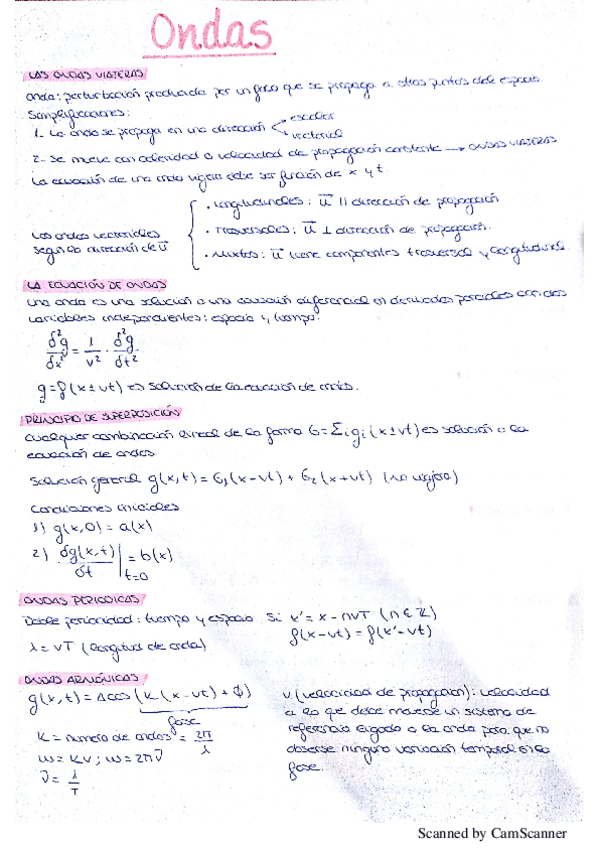 Ondas
LAS ONDAS VIAJERAS
Onda: perturbación producida por un foco que se propaga a otros puntos del espacio.
Simplificaciones:
1. La onda se propaga en una dirección escalar
vectorial
2. Se mueve con celeridad o velocidad de propagación constante → ONDAS VIAJERAS
La ecuación de una onda viajera debe ser función de x y t.
Las ondas vectoriales
según la dirección de u⃗
• Longitudinales: u⃗ || dirección de propagación
• Trasversales: u⃗ ⊥ dirección de propagación.
• Mixtas: u⃗ tiene componentes trasversal y longitudinal.
LA ECUACIÓN DE ONDAS
Una onda es una solución a una ecuación diferencial en derivadas parciales con dos
variables independientes: espacio y tiempo.
δ²g/δx² = 1/v² · δ²g/δt²
g = f(x ± vt) es solución de la ecuación de ondas.
PRINCIPIO DE SUPERPOSICIÓN
Cualquier combinación lineal de la forma G = Σi gi (x ± vt) es solución a la
ecuación de ondas.
Solución general g(x,t) = G1(x-vt) + G2(x+vt) (no viajera)
Condiciones iniciales
1) g(x,0) = a(x)
2) δg(x,t)/δt |t=0 = b(x)
ONDAS PERIODICAS
Doble perioricidad: tiempo y espacio. Si x' = x - nvT (n ∈ ℤ)
f(x-vt) = f(x'-vt)
λ = vT (longitud de onda)
ONDAS ARMÓNICAS
g(x,t) = A cos (K(x-vt) + ϕ)
fase
K = número de ondas = 2π/λ
ω = Kv ; ω = 2πν
ν = 1/T
v (velocidad de propagación): velocidad
a la que debe moverse un sistema de
referencia ligado a la onda para que no
observe ninguna variación temporal en la
fase.
Scanned by CamScanner